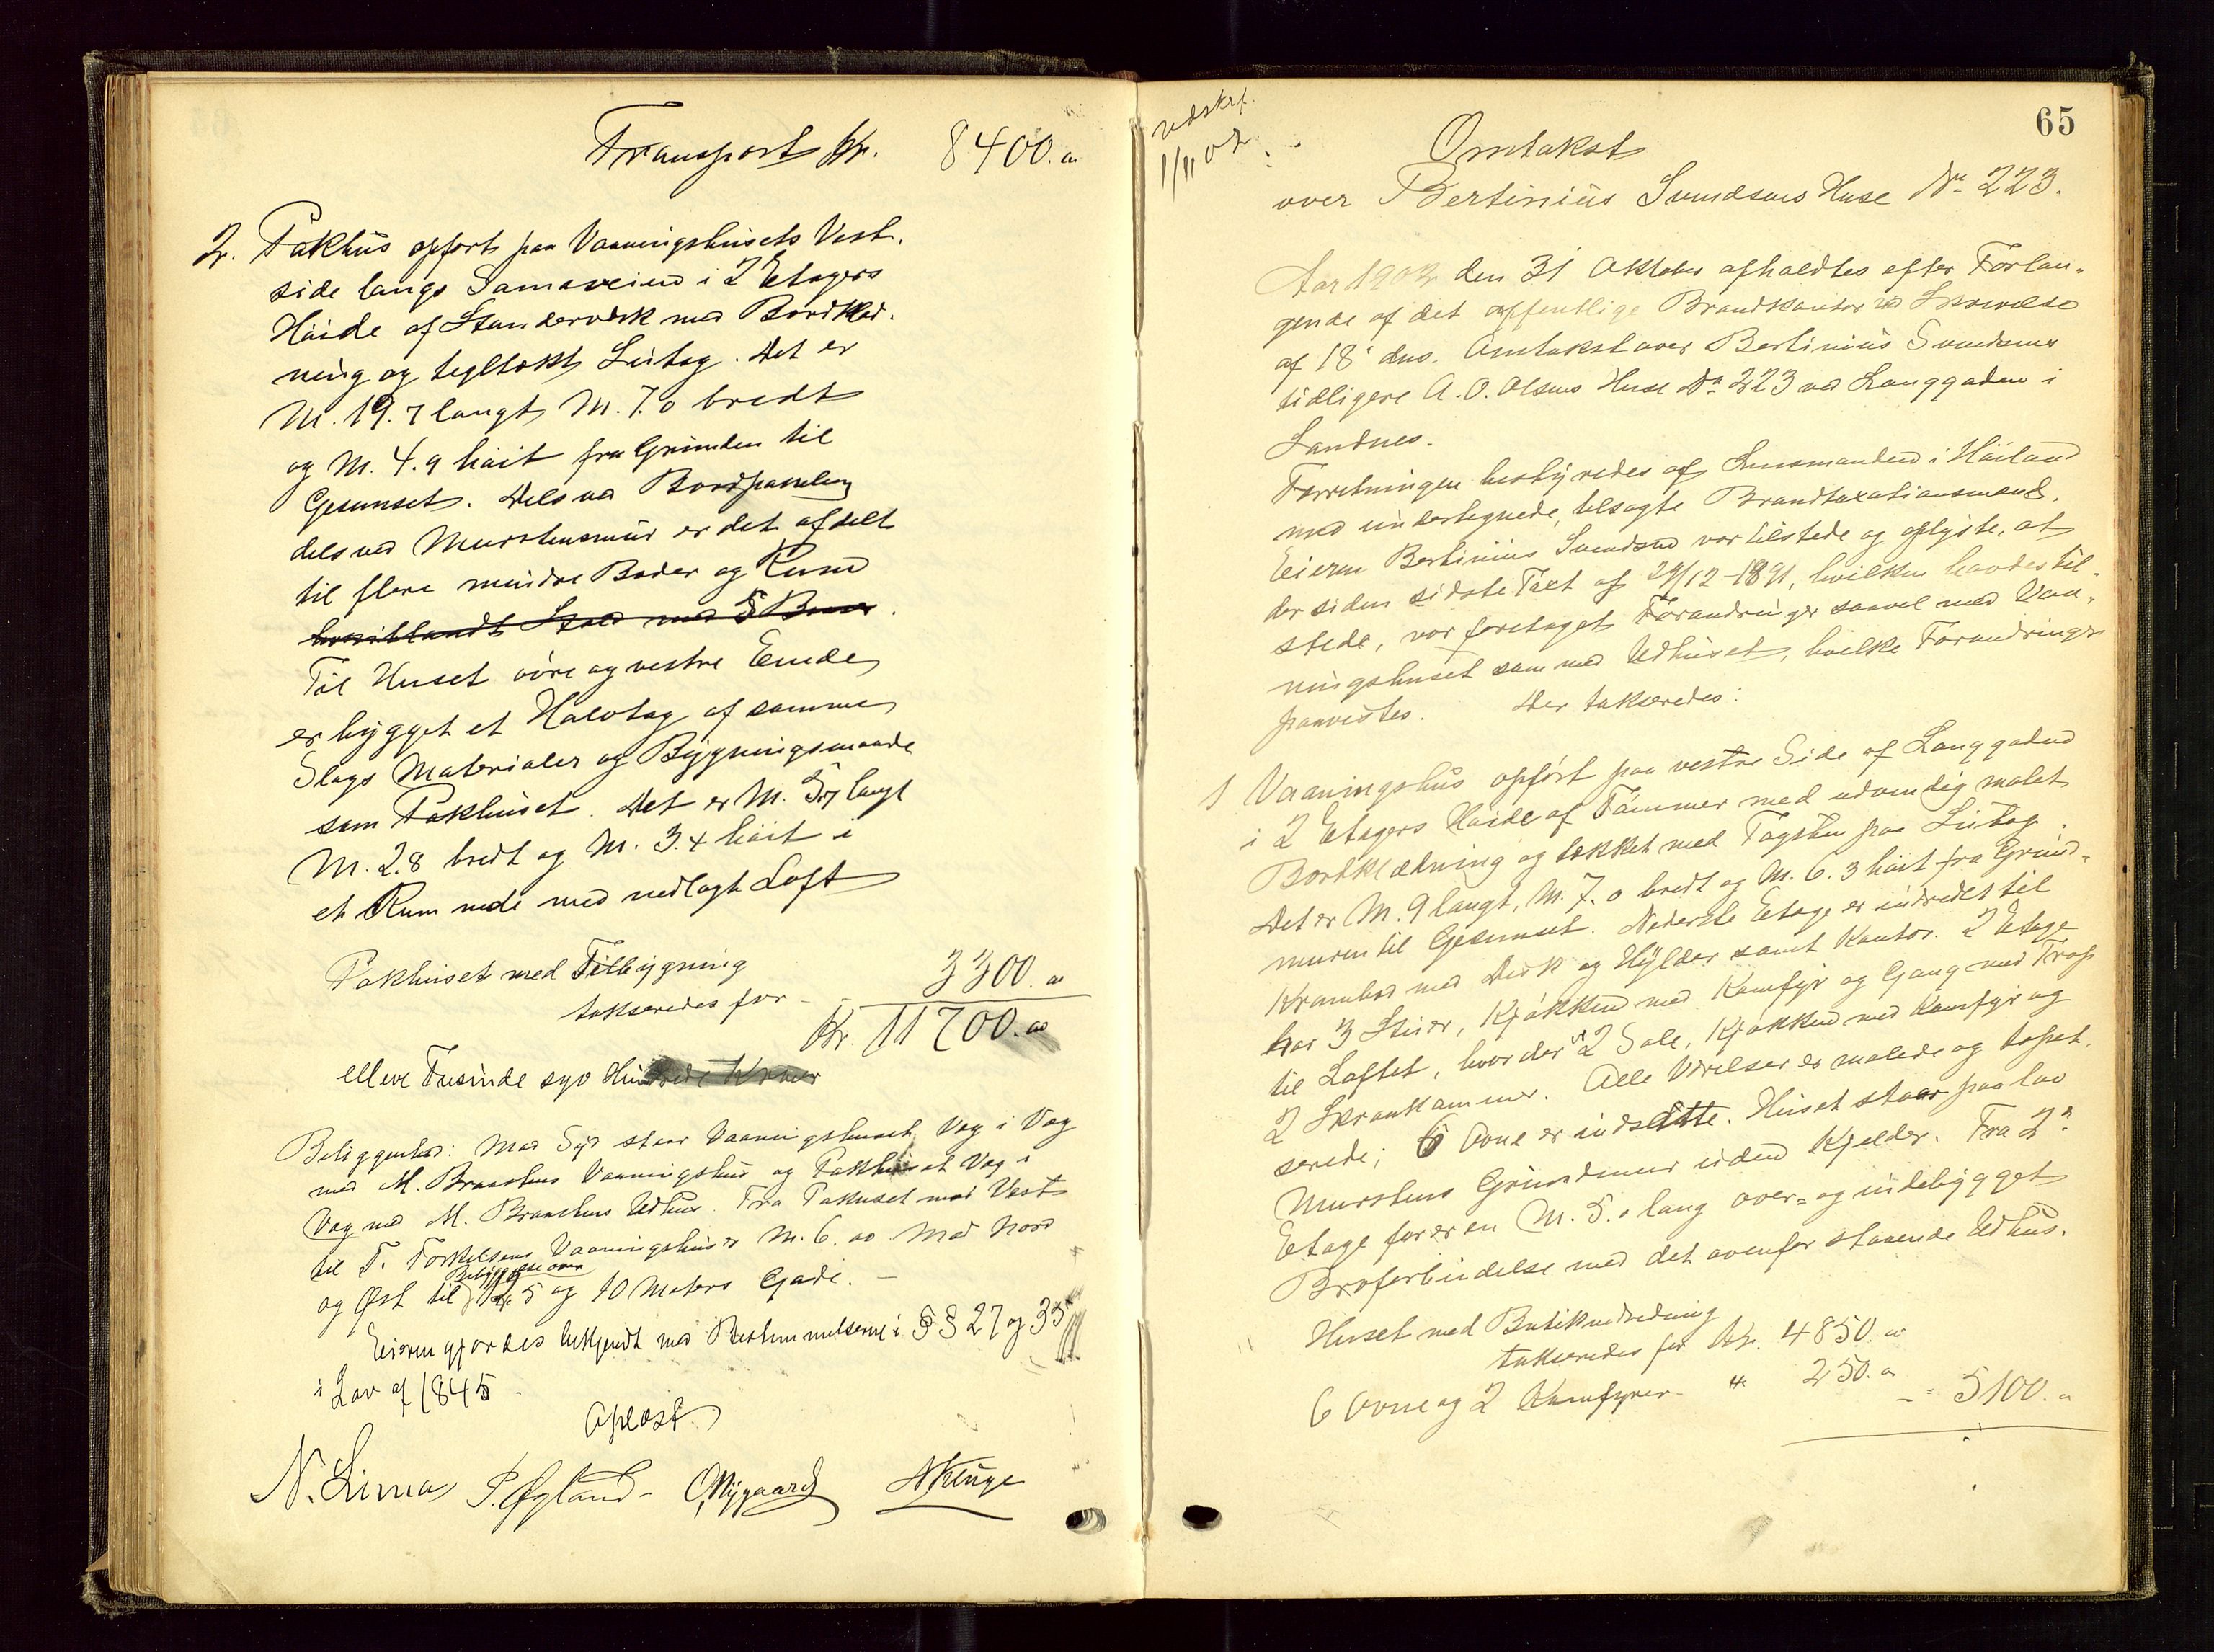 Transport Kr. 8400.00
2. Pakhus opført paa Vaaningshusets Vest-
side langs Jernveien i 2 Etagers
Høide af Standerværk med Bordklæd-
ning og tegltækt Lutag. Det er
M. 19.7 langt, M. 7.0 bredt
og M. 4.9 høit fra Grunden til
Gesimset. Dels ved Bordpaneling
dels ved Murstensmur er det afdelt
til flere mindre Boder og Rum
Til Huset øvre og vestre Ende
er bygget et Halvtag af samme
Slags Materialer og Bygningsmaade
som Pakhuset. Det er M. 5.7 langt
M. 2.8 bredt og M. 3.4 høit i
et Rum nede med nedlagt Loft
Pakhuset med Tilbygning 3300.00
takseredes for -
Kr. 11700.00
elleve Tusinde syv Hundrede Kroner
Beliggenhed: Mod Syd staar Vaaningshuset Væg i Væg
med M. Braastens Vaaningshus og Pakhuset Væg i
Væg med M. Braastens Udhus. Fra Pakhuset mod Vest
til T. Torkelsens Vaaningshus er M. 6.00 Mod Nord
Bebyggelse over
og Øst til 12.5 og 10 Meters Gade. -
Eieren gjordes bekjendt med Bestemmelserne i §§ 27 og 35
i Lov af 1845
Oplæst
N. Lima P. Øgland - O. Nygaard A Kluge
udskrf.
1/11 02
65
Omtakst
over Bertinius Svendsens Huse No 223.
Aar 1902 den 31 Oktober afholdtes efter Forlan-
gende af det offentlige Brandkontor ved Skrivelse
af 18 ds. Omtakst over Bertinius Svendsens
tidligere A. O. Olsens Huse No 223 ved Langgaden i
Sandnes.
Forretningen bestyredes af Lensmanden i Høiland
med undertegnede, tilsagte Brandtaxationsmænd.
Eieren Bertinius Svendsen var tilstede og oplyste, at
der siden sidste Taxt af 29/12-1891, hvilken havdes til-
stede, var foretaget Forandringer saavel med Vaa-
ningshuset som med Udhuset, hvilke Forandringer
paavistes. Der takseredes:
1 Vaaningshus opført paa vestre Side af Langgaden
i 2 Etagers Høide af Tømmer med udvendig malet
Bordklædning og tækket med Tagsten paa Lutag.
Det er M. 9 langt, M. 7.0 bredt og M. 6.3 høit fra Grund-
muren til Gesimset. Nederste Etage er indredet til
Krambod med Disk og Hylder samt Kontor. 2 Etage
har 3 Stuer, Kjøkken med Komfyr og Gang med Trap
til Loftet, hvor der er 2 Sale, Kjøkken med Komfyr og
2 Skraakammer. Alle Værelser er malede og tapet-
serede; 6 Ovne er indsatte. Huset staar paa lav
Murstens Grundmur uden Kjelder. Fra 2n
Etage fører en M. 5.0 lang over- og indebygget
Broforbindelse med det ovenfor staaende Udhus.
Huset med Butikindredning
takseredes for Kr. 4850.00
6 Ovne og 2 Komfyrer - " 250.00 - = 5100.00